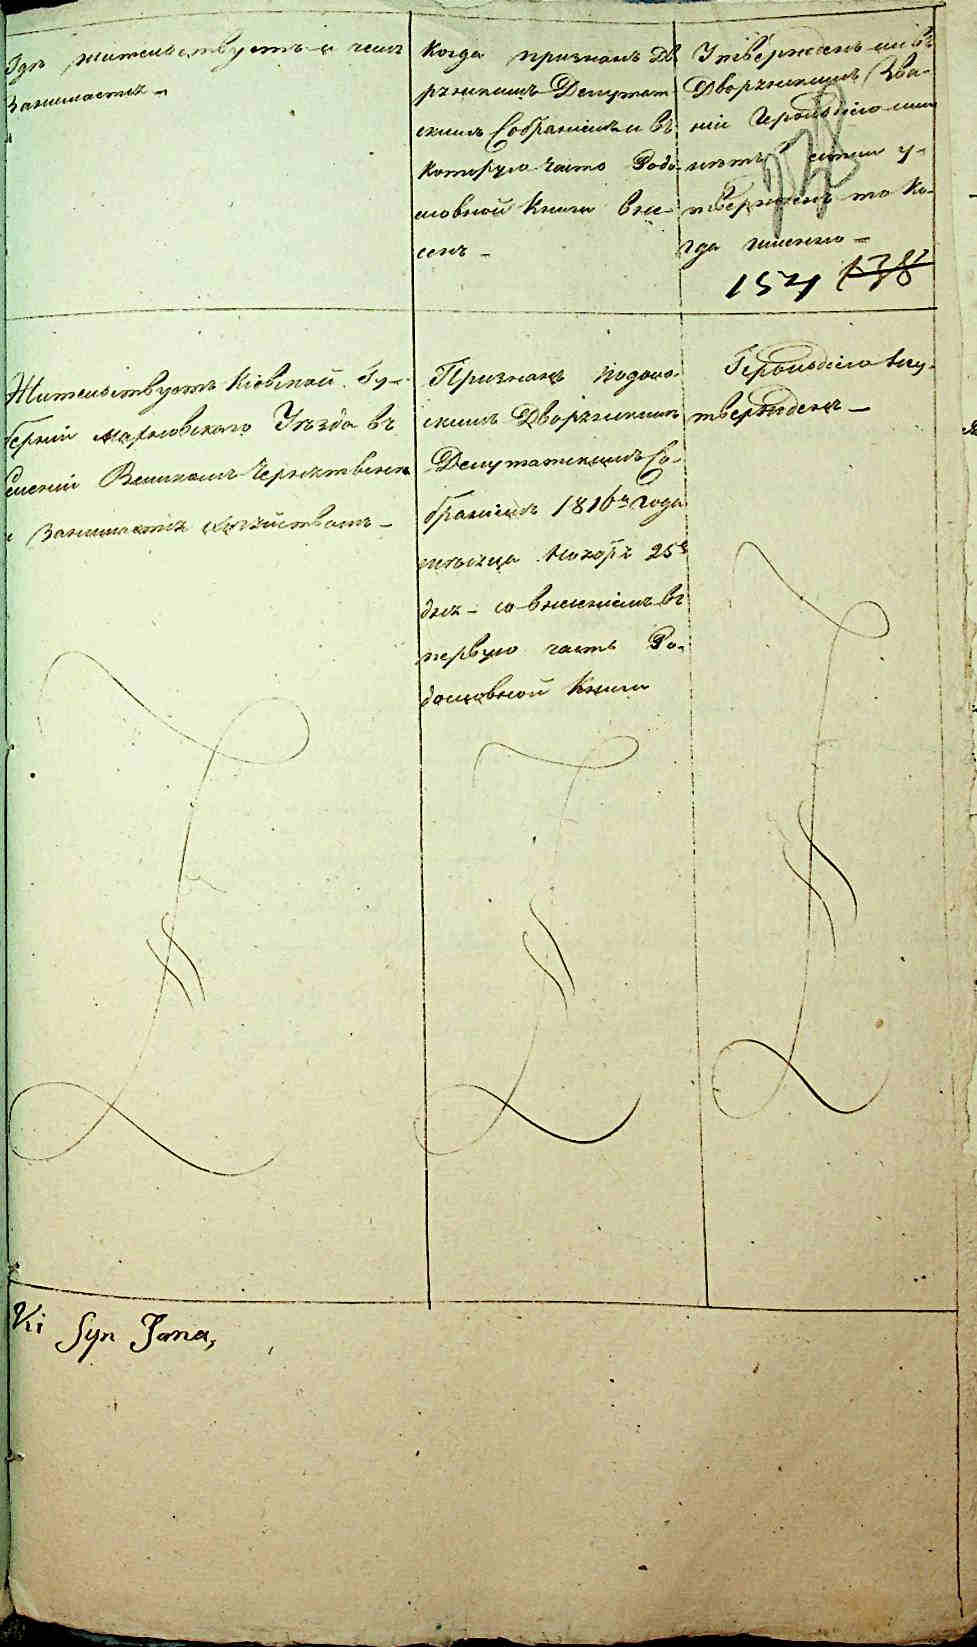 Гдѣ жительствуетъ и чемъ
Занимается –
Когда признанъ Дво
рянскимъ Депутат
скимъ Собраніемъ и въ
которую часть Родо
словной Книги вне
сенъ –
Утвержденъ ли въ
Дворянскимъ Зва-
ніи Герольдіею или
нѣтъ и естли у-
твержденъ то Ко-
гда имянно –
154
Жительствуетъ Кіевской Гу-
берніи Махновскаго Уѣзда въ
имѣніи Великомъ
и Занимается хозяйствомъ –
Признанъ Подоль
скимъ Дворянскимъ
Депутатскимъ Со-
браніемъ 1816го Года
мѣсяца Ноября 25го
дня – со внесеніемъ въ
первую часть Ро-
дословной Книги
Герольдіею не у-
твержденъ –
ki Syn Jana,